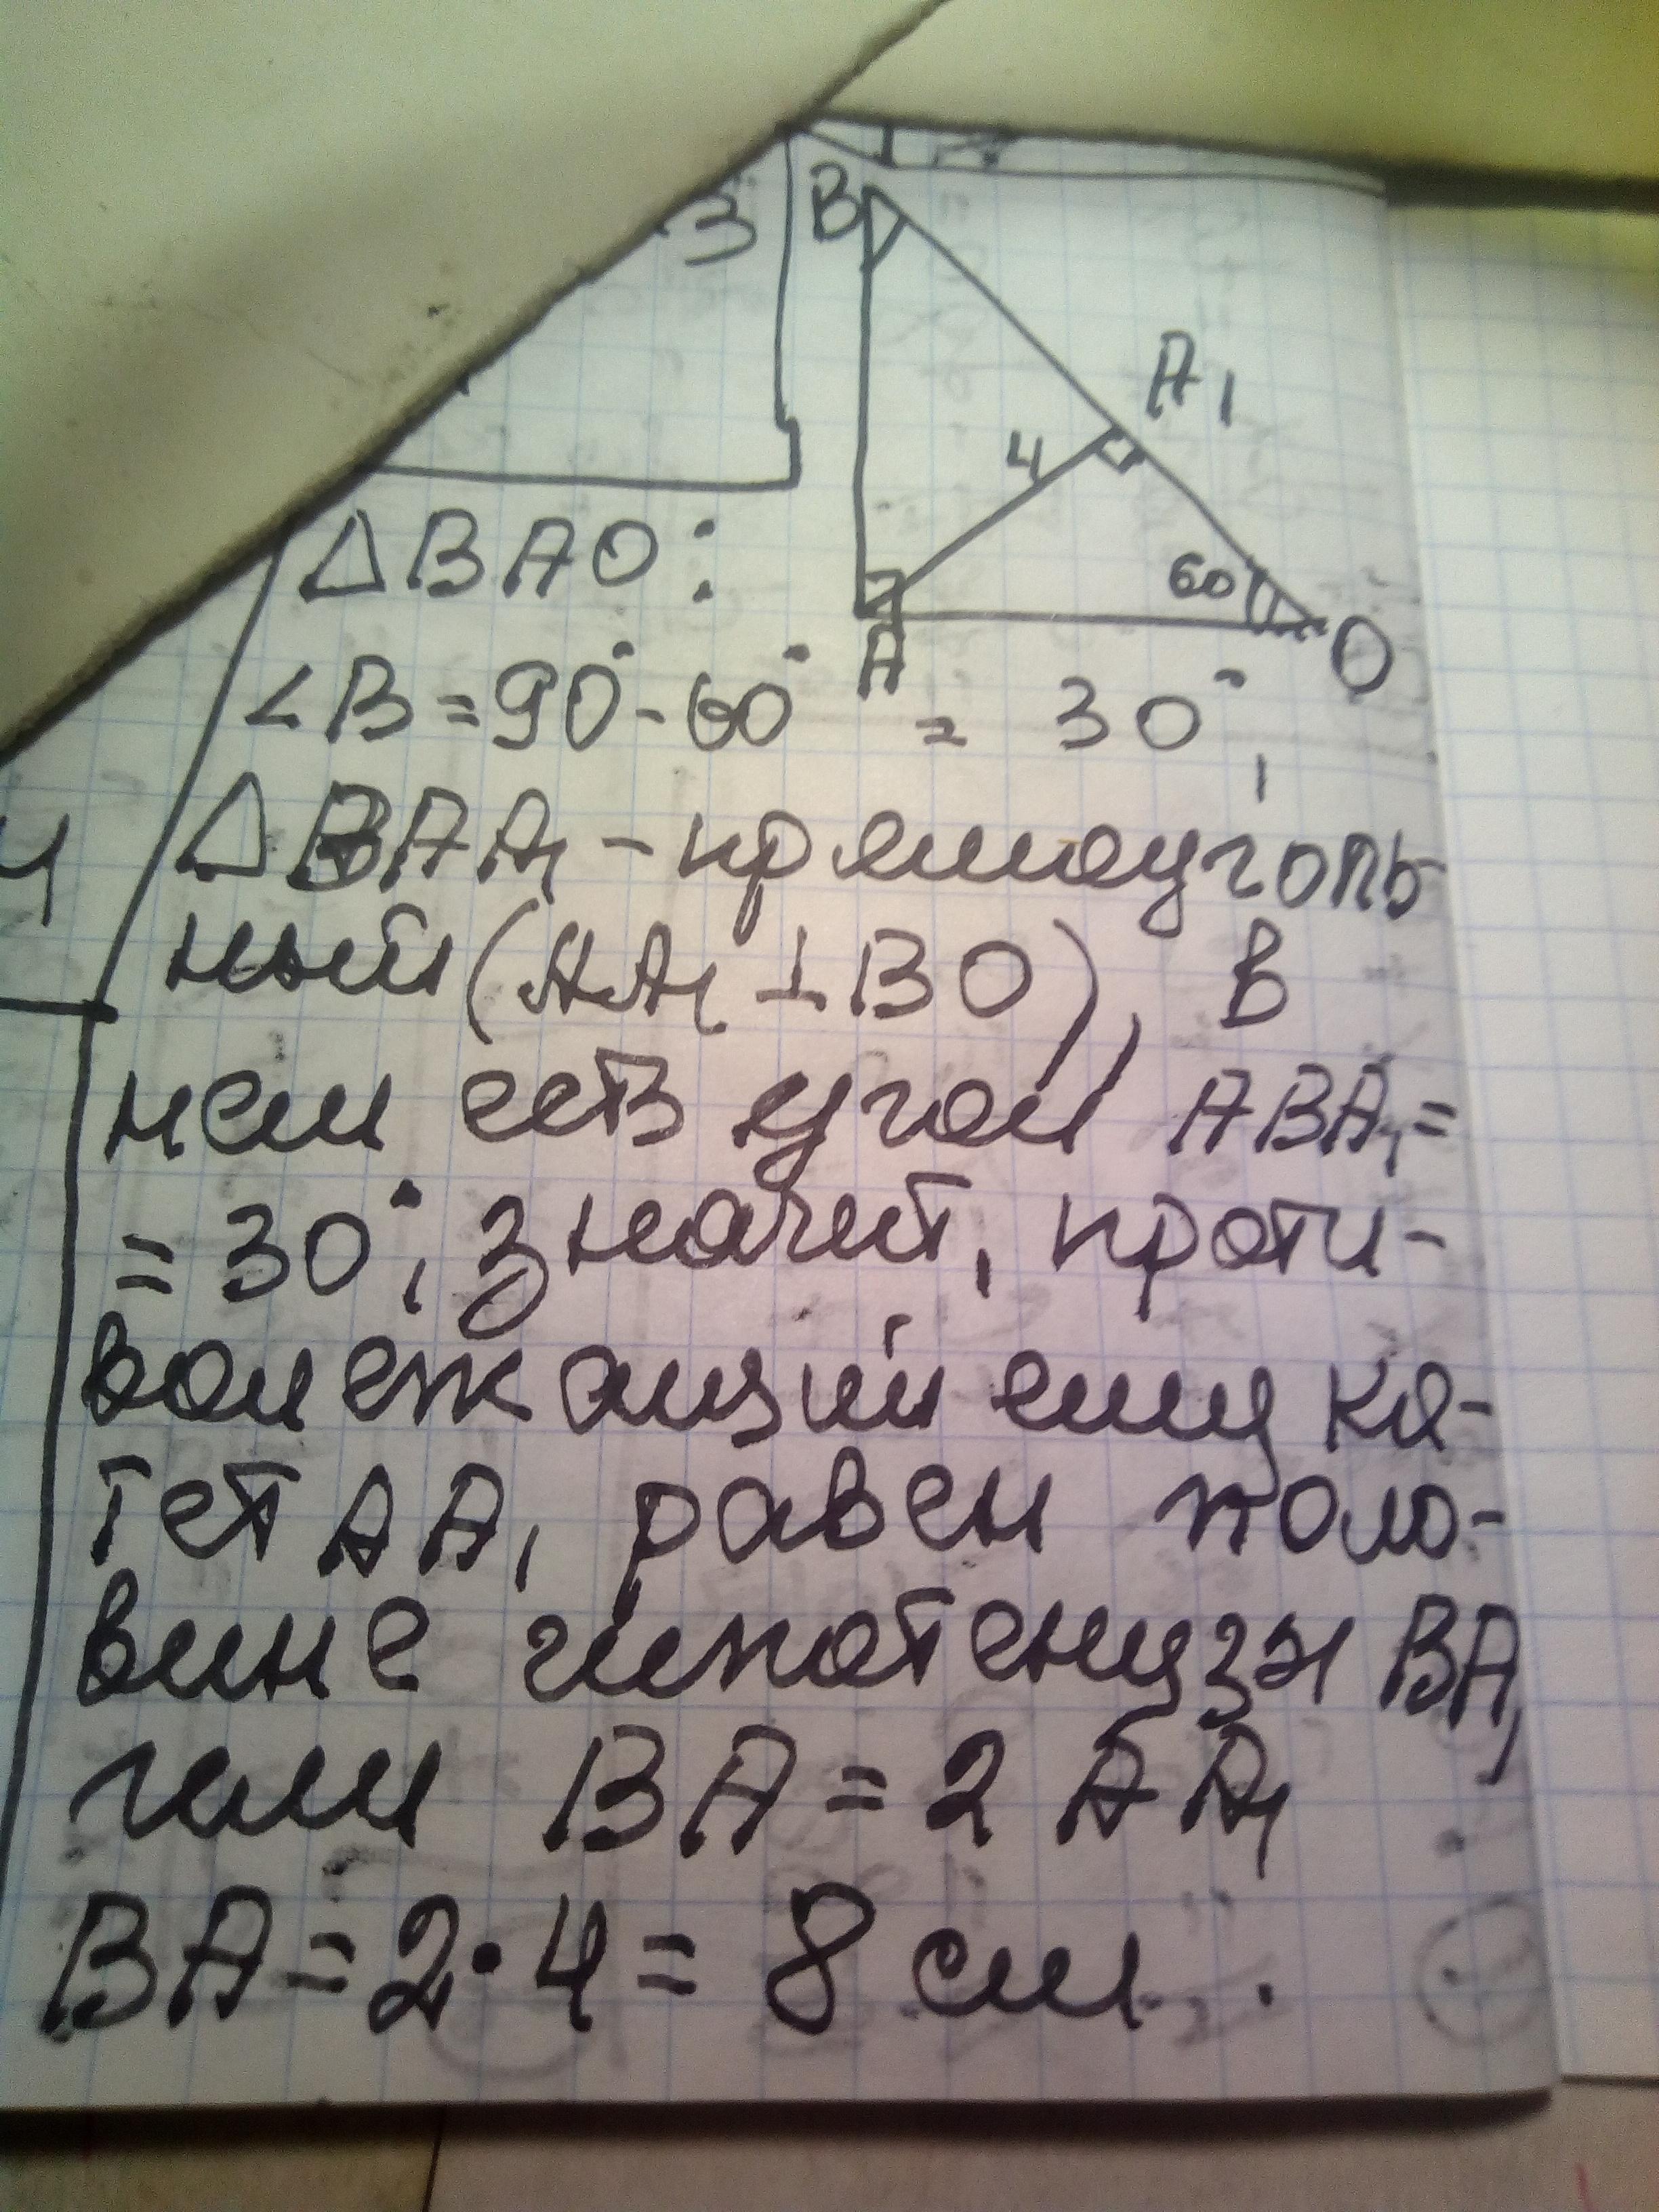 3
B
A1
4
60
A
O
△BAO:
<B=90°-60° = 30°,
4
△BAA1 - прямоуголь
ный (AA1 ⊥ BO), в
нем есть угол ABA1=
= 30°, значит, проти-
волежащий ему ка-
тет AA1 равен поло-
вине гипотенузы BA,
или BA = 2 AA1
BA = 2 · 4 = 8 см.